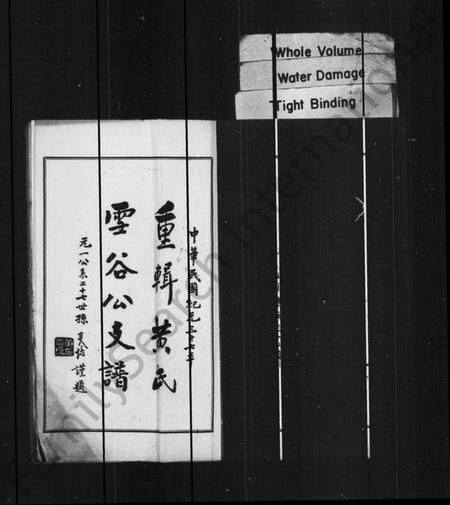 Whole Volume
Water Damage
Tight Binding
中華民國紀元三十七年
重輯黃氏
雲谷公支譜
元一公系二十七世孫
謹題
FamilySearch International